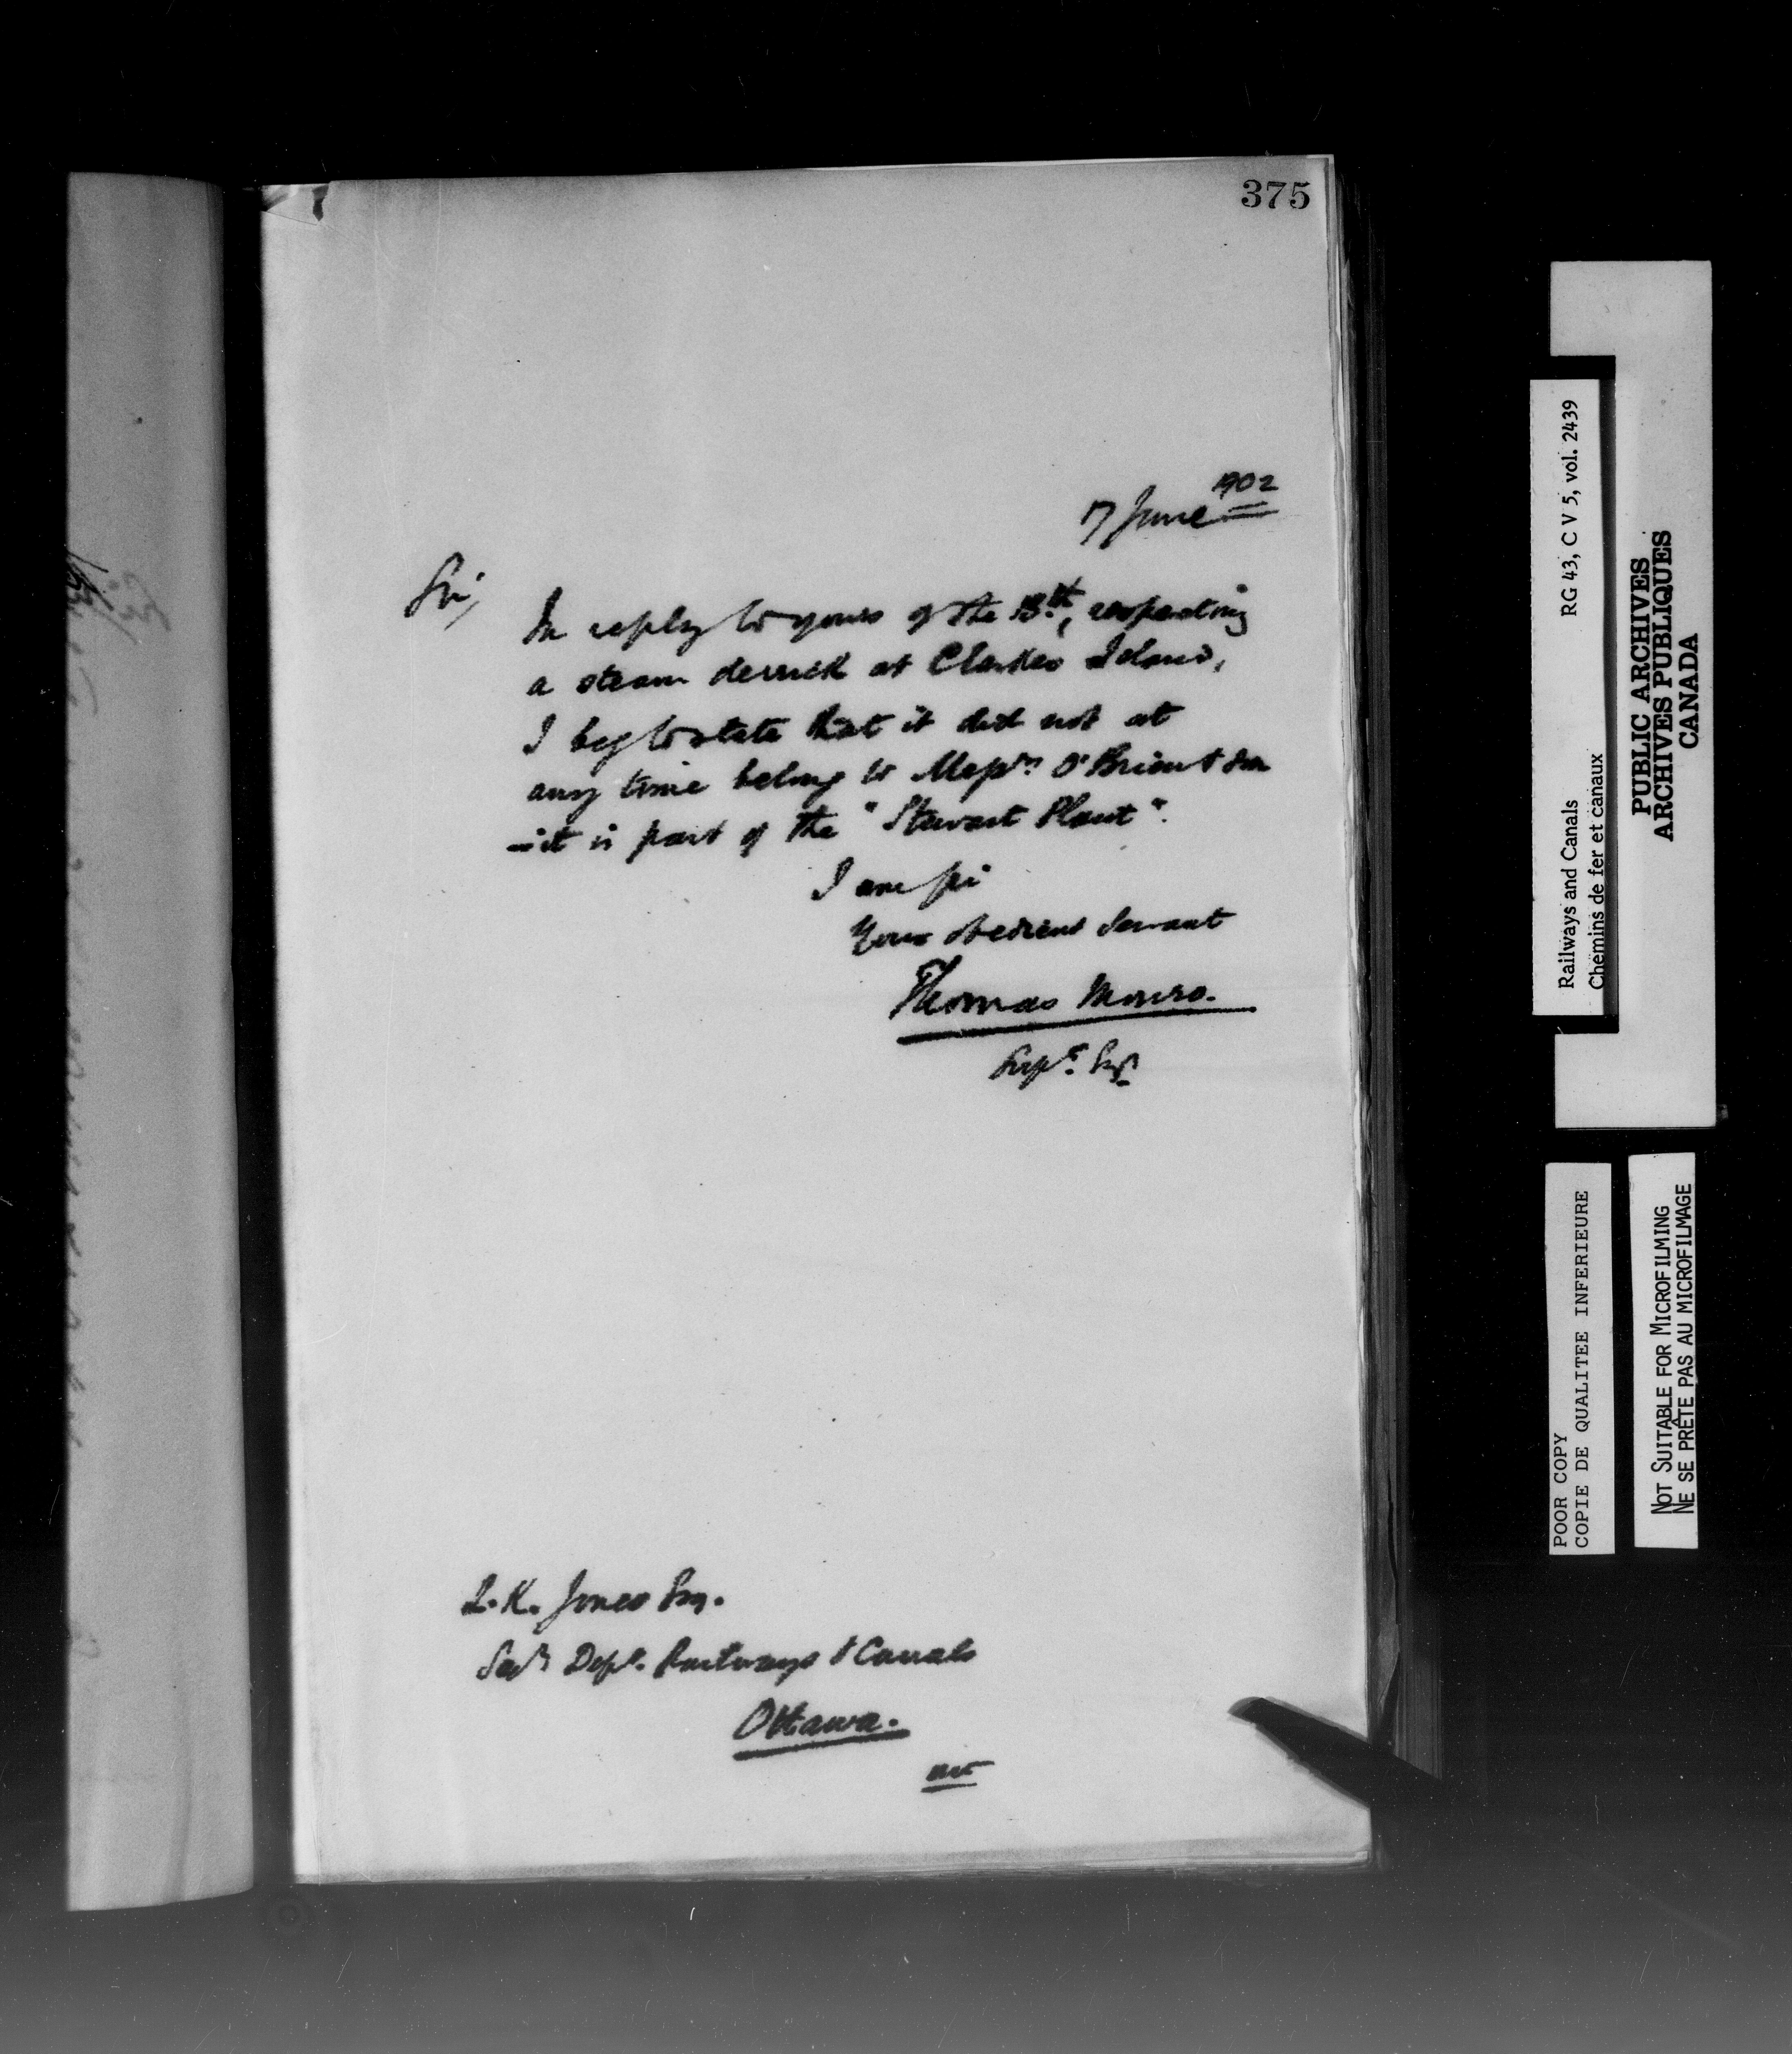 375
17 June 1902
Sir,
In reply to yours of the 13th, respecting
a steam derrick at Clarkes Island,
I beg to state that it did not at
any time belong to Messrs O'Brien & Son
– it is part of the "Stewart Plant".
I am Sir
Your obedient Servant
Thomas Monro.
Supt. Engr
L. K. Jones Esq.
Secy Dept. Railways & Canals
Ottawa.
Railways and Canals RG 43, C V 5, vol. 2439
Chemins de fer et canaux
PUBLIC ARCHIVES
ARCHIVES PUBLIQUES
CANADA
POOR COPY
COPIE DE QUALITEE INFERIEURE
NOT SUITABLE FOR MICROFILMING
NE SE PRÊTE PAS AU MICROFILMAGE